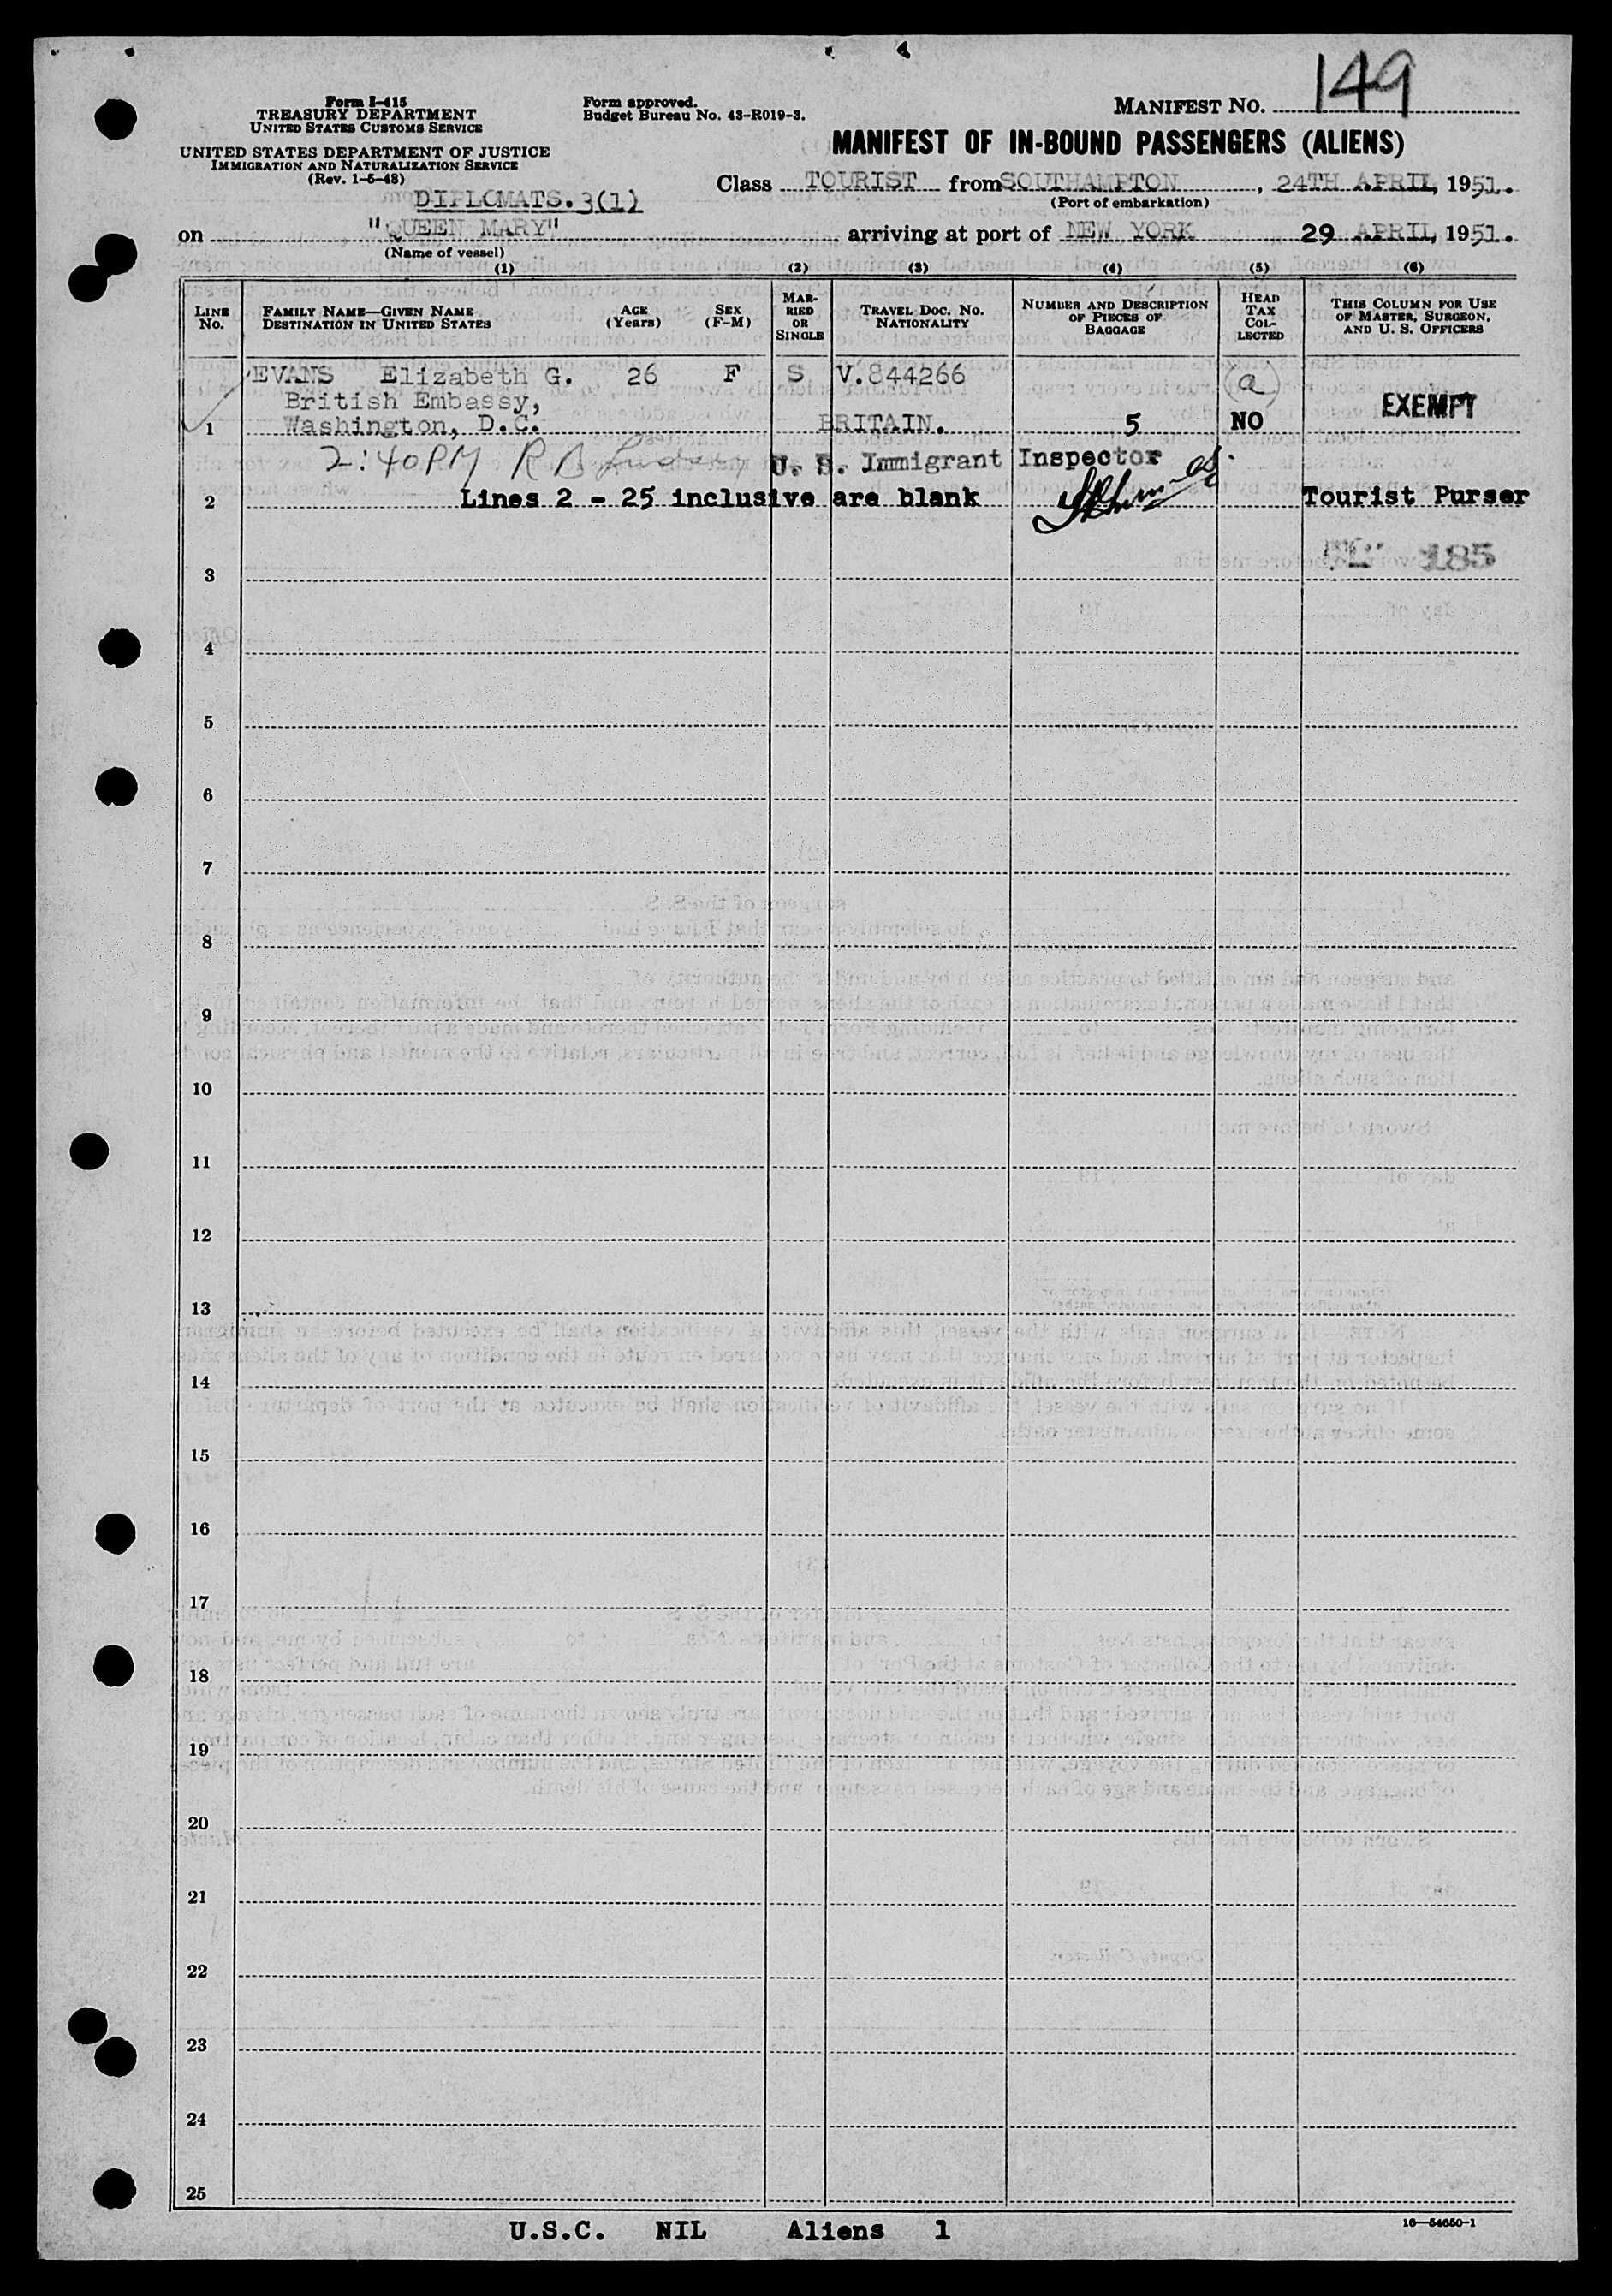 Form I-415
TREASURY DEPARTMENT
UNITED STATES CUSTOMS SERVICE
UNITED STATES DEPARTMENT OF JUSTICE
IMMIGRATION AND NATURALIZATION SERVICE
(Rev. 1-5-48)
Form approved.
Budget Bureau No. 43-R019-3.
MANIFEST NO. 149
MANIFEST OF IN-BOUND PASSENGERS (ALIENS)
Class TOURIST from SOUTHAMPTON, 24TH APRIL, 1951.
(Port of embarkation)
DIPLOMATS. 3(1)
on "QUEEN MARY" arriving at port of NEW YORK 29 APRIL, 1951.
(Name of vessel)
(1) (2) (3) (4) (5) (6)
LINE No. FAMILY NAME—GIVEN NAME DESTINATION IN UNITED STATES AGE (Years) SEX (F-M) MARRIED OR SINGLE TRAVEL DOC. NO. NATIONALITY NUMBER AND DESCRIPTION OF PIECES OF BAGGAGE HEAD TAX COLLECTED THIS COLUMN FOR USE OF MASTER, SURGEON, AND U. S. OFFICERS
EVANS Elizabeth G. 26 F S V.844266 a
British Embassy, EXEMPT
1 Washington, D.C. BRITAIN. 5 NO
2:40PM R B U. S. Immigrant Inspector
2 Lines 2 - 25 inclusive are blank Tourist Purser
3 185
4
5
6
7
8
9
10
11
12
13
14
15
16
17
18
19
20
21
22
23
24
25
U.S.C. NIL Aliens 1
16—54650-1